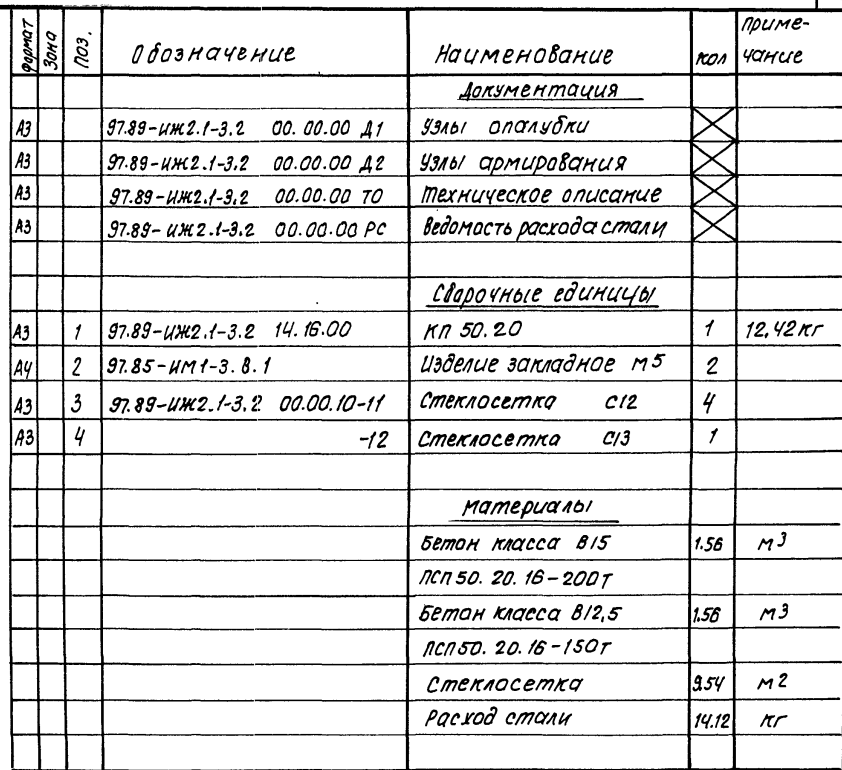 Формат Зона Поз. Обозначение Наименование Кол Приме-
чание
Документация
А3 97.89-ИЖ2.1-3.2 00.00.00 Д1 Узлы опалубки
А3 97.89-ИЖ2.1-3.2 00.00.00 Д2 Узлы армирования
А3 97.89-ИЖ2.1-3.2 00.00.00 ТО Техническое описание
А3 97.89-ИЖ2.1-3.2 00.00.00 РС Ведомость расхода стали
Сварочные единицы
А3 1 97.89-ИЖ2.1-3.2 14.16.00 КП 50.20 1 12,42 кг
А4 2 97.85-ИМ1-3.8.1 Изделие закладное М5 2
А3 3 97.89-ИЖ2.1-3.2 00.00.10-11 Стеклосетка С12 4
А3 4 -12 Стеклосетка С13 1
Материалы
Бетон класса В15 1.56 м3
ПСП 50.20.16-200т
Бетон класса В12,5 1.56 м3
ПСП 50.20.16-150т
Стеклосетка 9.54 м2
Расход стали 14.12 кг